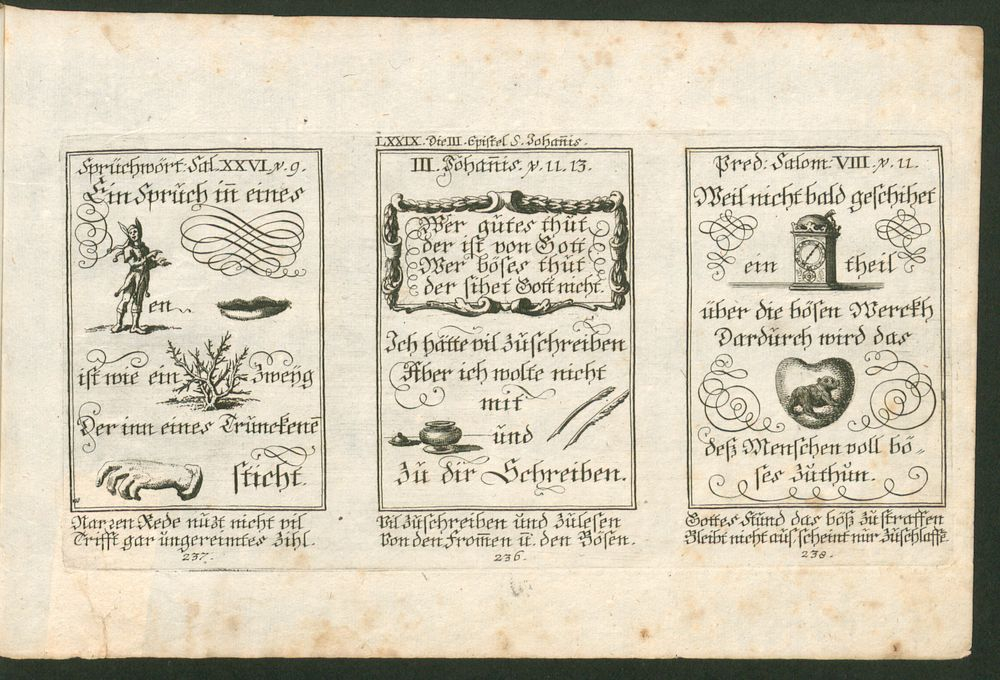 Sprüchwört: Sal. XXVI. v. 9.
Ein Sprüch iñ eines
en
ist wie ein Zweÿg
Der inn eines Trünckenē
sticht.
Narren Rede nüzt nicht vil
Trifft gar üngereimtes Zihl.
237.
LXXIX. Die III. Epistel S. Johañis.
III. Johañis. v. 11. 13.
Wer gütes thüt
der ist von Gott
Wer böses thüt
der sihet Gott nicht.
Ich hätte vil züschreiben
Aber ich wolte nicht
mit
ünd
zü dir Schreiben.
Vil züschreiben ünd zülesen
Von den From̄en ü. den Bösen.
236.
Pred: Salom: VIII. v. 11.
Weil nicht bald geschihet
ein theil
über die bösen Werckh
Dardürch wird das
deß Menschen voll bö-
ses züthün.
Gottes Stünd das böß züstraffen
Bleibt nicht aüs, scheint nür züschlaffē.
238.